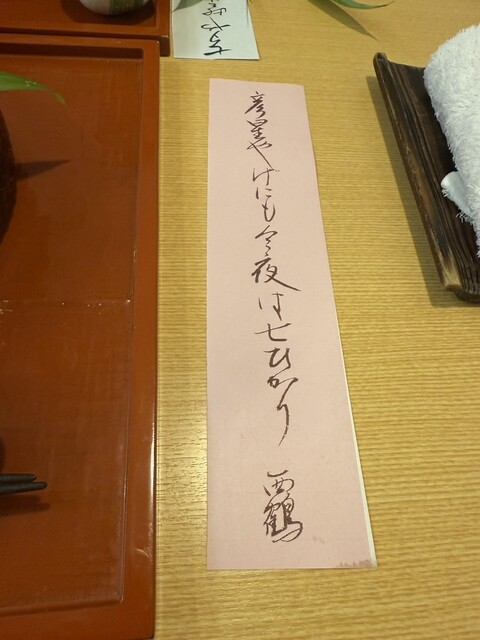 彦星やげにも今夜は七ひかり 西鶴